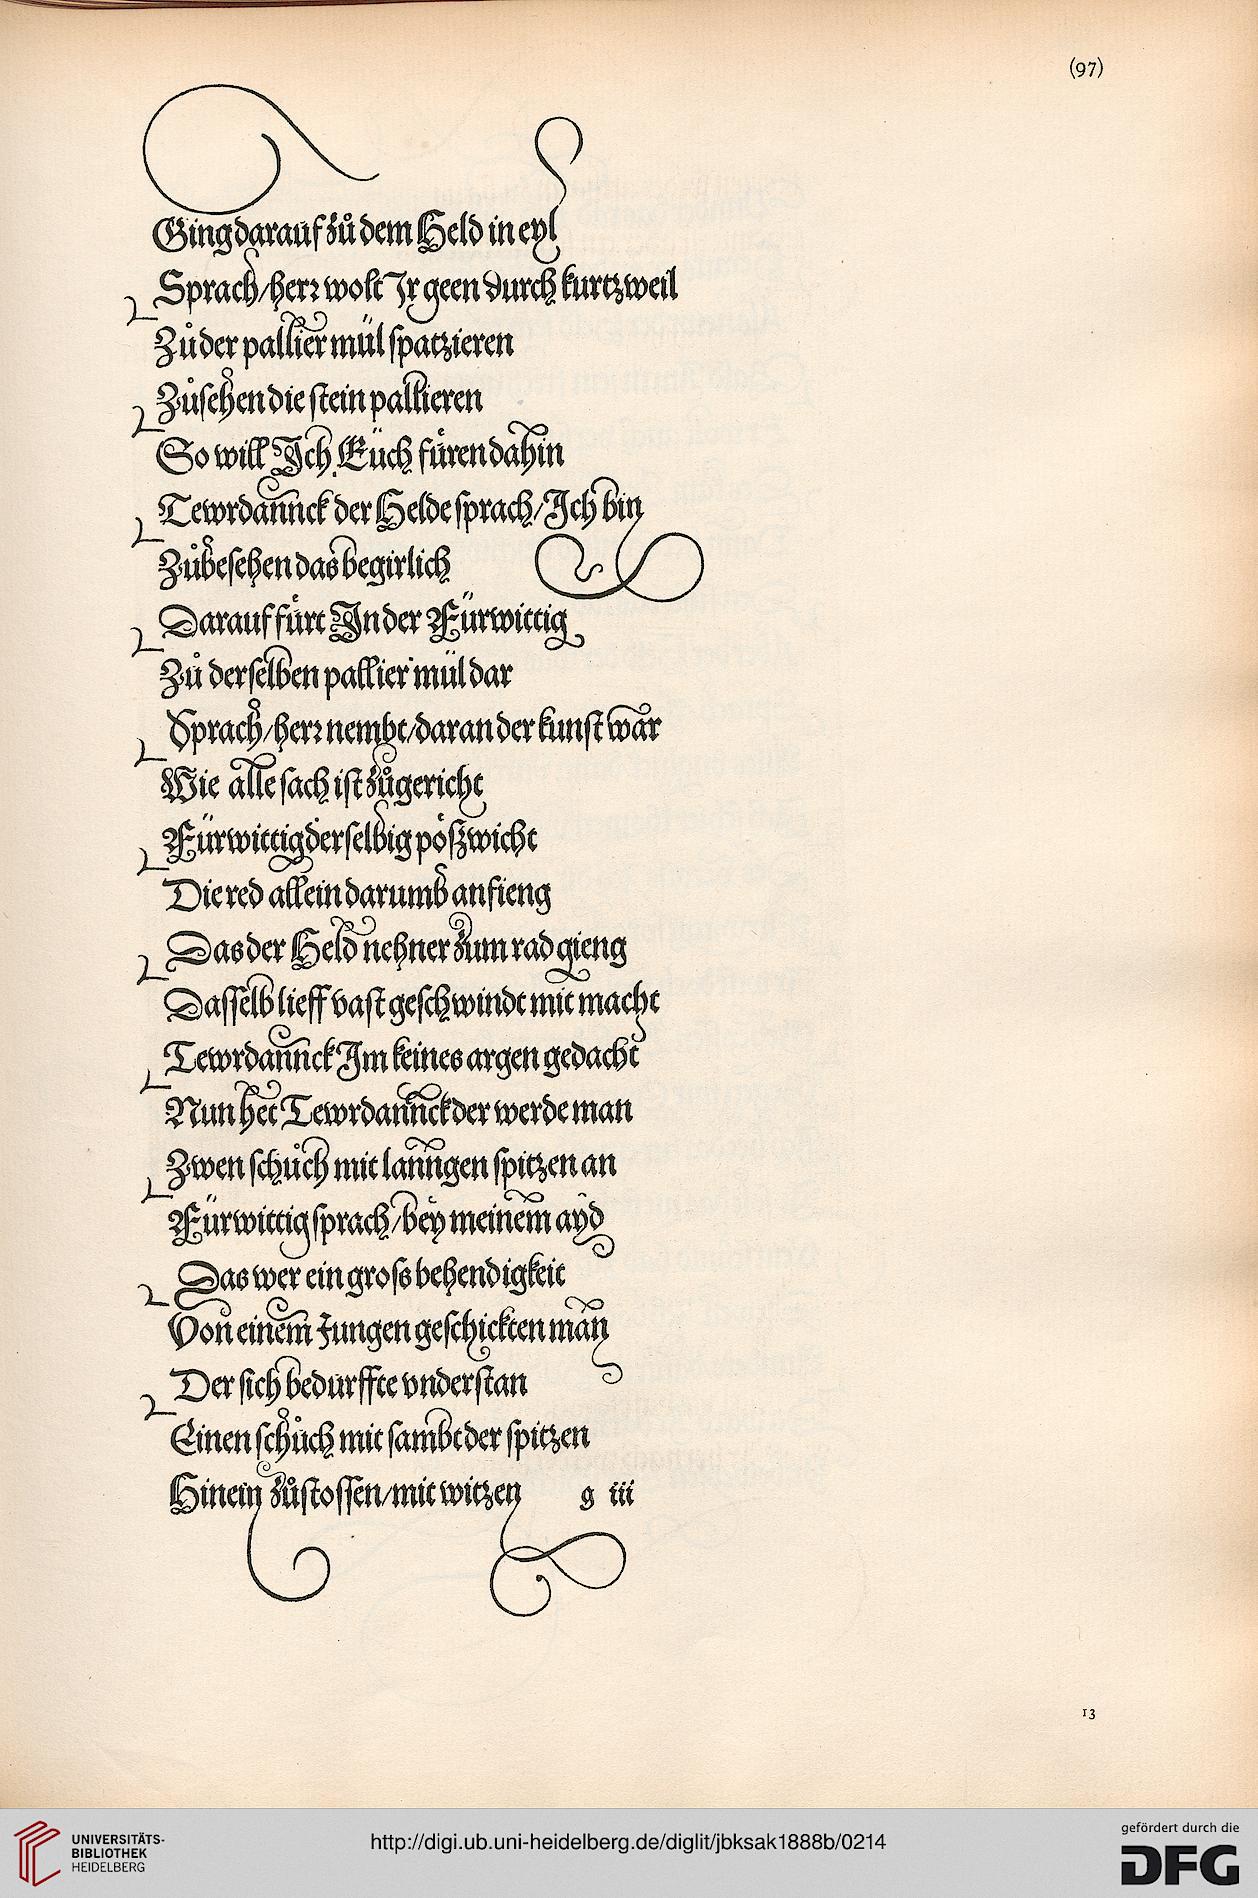 (97)
Ging darauf zů dem Held in eyl
Sprach/herr wolt Ir geen durch kurtzweil
Zů der pallier mül spatzieren
Zůsehen die stein pallieren
So will Ich Eüch fůren dahin
Tewrdannck der Helde sprach/Ich bin
Zůbesehen das begirlich
Darauf fůrt In der Fürwittig
Zů derselben pallier mül dar
Sprach/herr nembt/daran der kunst war
Wie alle sach ist zůgericht
Fürwittig derselbig pößwicht
Die red allein darumb anfieng
Das der Held nehner zum rad gieng
Dasselb lieff vast geschwindt mit macht
Tewrdannck Im keines argen gedacht
Nun het Tewrdannck der werde man
Zwen schůch mit lanngen spitzen an
Fürwittig sprach/bey meinem ayd
Das wer ein gross behendigkeit
Von einem Jungen geschickten man
Der sich bedurffte vnderstan
Einen schůch mit sambt der spitzen
Hinein zůstossen/mit witzen g iii
13
UNIVERSITÄTS-
BIBLIOTHEK
HEIDELBERG
http://digi.ub.uni-heidelberg.de/diglit/jbksak1888b/0214
gefördert durch die
DFG